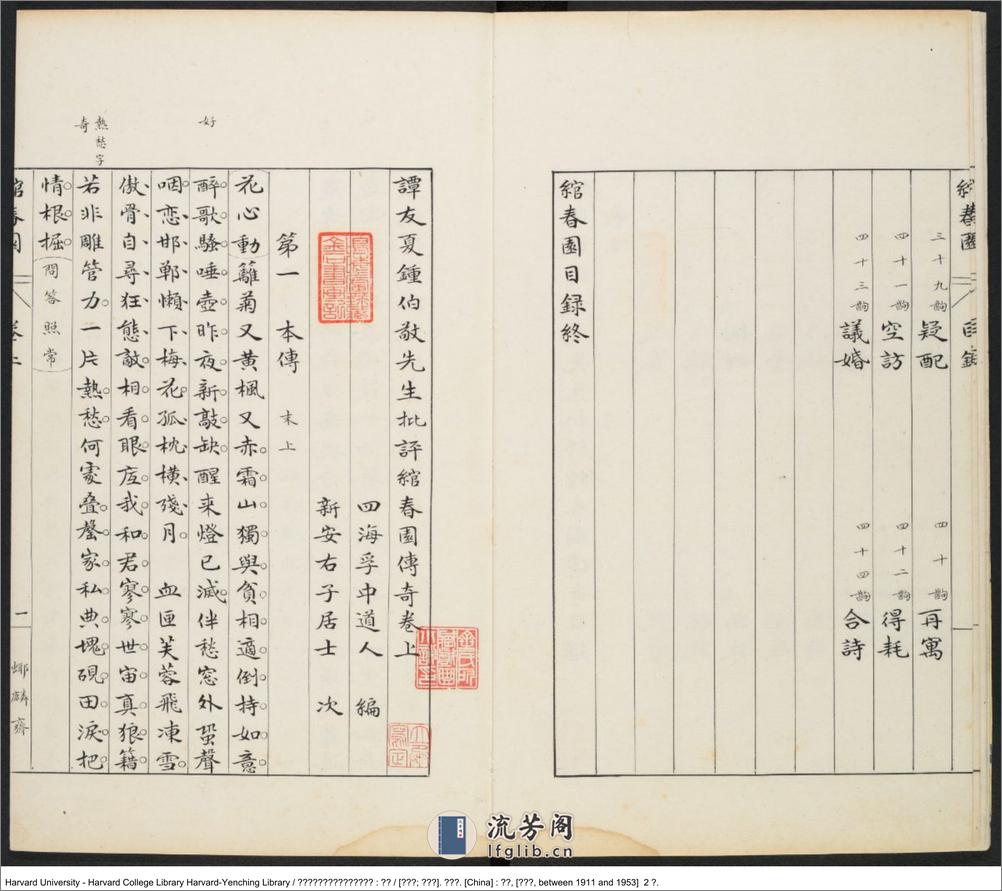 綰春園 目錄
三十九齣 疑配 四十齣 再寓
四十一齣 空訪 四十二齣 得耗
四十三齣 議婚 四十四齣 合詩
綰春園目錄終
譚友夏鍾伯敬先生批評綰春園傳奇卷上
四海孚中道人 編
新安右子居士 次
第一 本傳 末上
花心動籬菊又黃楓又赤霜山獨與貧相適倒持如意
好
醉歌騷唾壺昨夜新敲缺醒來燈已滅伴愁窓外蛩聲
咽戀邯鄲懶下梅花孤枕橫殘月 血匣芙蓉飛凍雪
傲骨自尋狂態敵相看眼底我和君寥寥世宙真狼籍
熱愁字
奇
若非雕管力一片熱愁何處叠罄家私典塊硯田淚把
情根掘問答照常
綰春園 卷上 一
流芳阁
lfglib.cn
Harvard University - Harvard College Library Harvard-Yenching Library / ??????????????? : ?? / [???; ???]. ???. [China] : ??, [???, between 1911 and 1953] 2 ?.